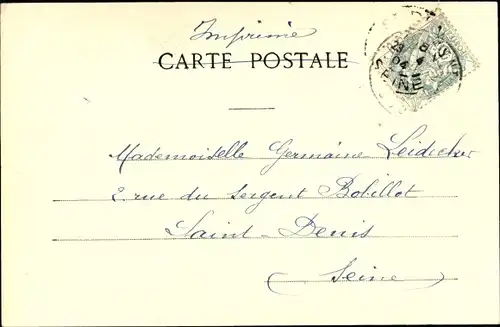 Imprimé
CARTE POSTALE
SEINE
04
Mademoiselle Germaine Leidicker
2 rue du Sergent Bobillot
Saint-Denis
(Seine)